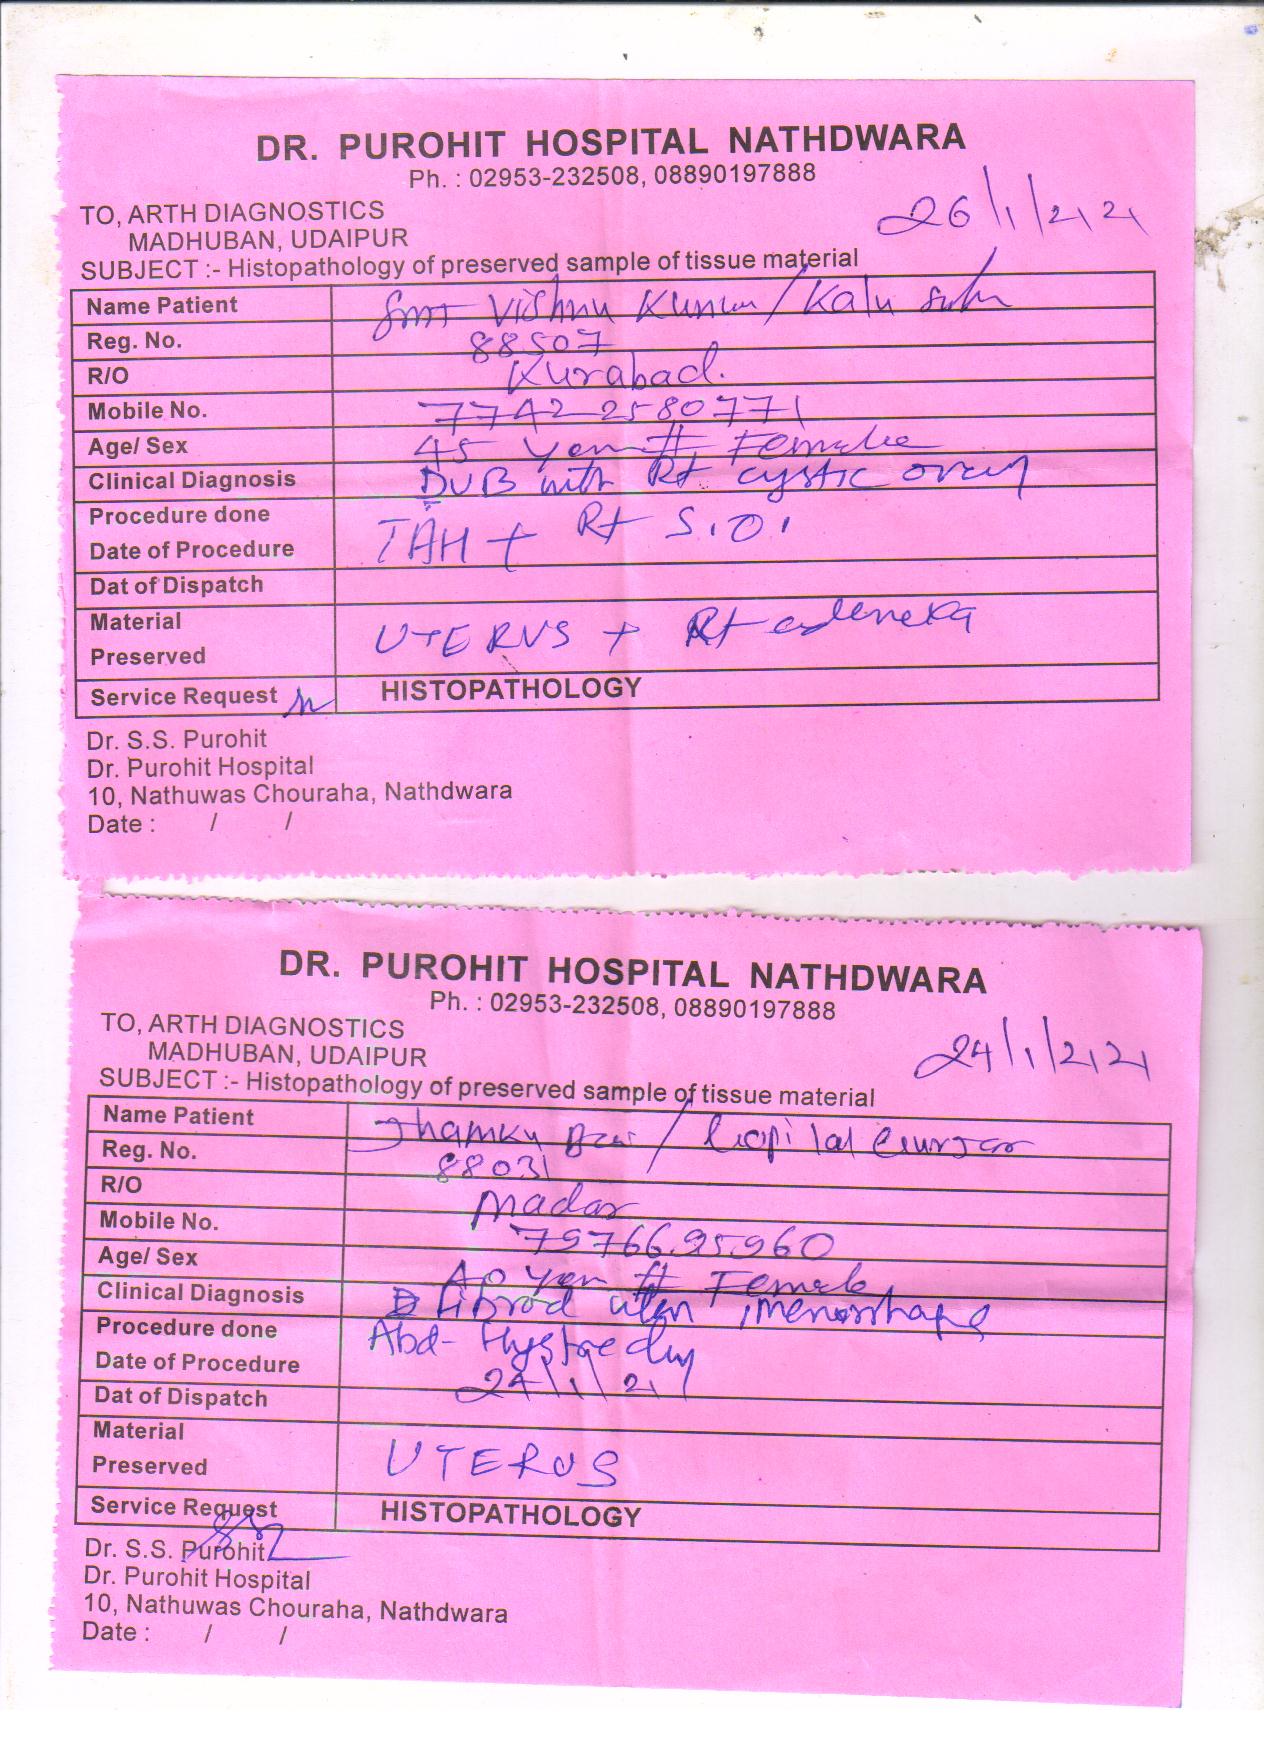 DR. PUROHIT HOSPITAL NATHDWARA
Ph. : 02953-232508, 08890197888
TO, ARTH DIAGNOSTICS
MADHUBAN, UDAIPUR
26/1/2021
SUBJECT :- Histopathology of preserved sample of tissue material
Name Patient Smt Vishnu Kunwar / Kalu
Reg. No. 88507
R/O Kurabad.
Mobile No. 7742258077
Age/ Sex 45 Year # Female
Clinical Diagnosis DUB with Rt cystic ovary
Procedure done TAH + Rt S.O.
Date of Procedure
Dat of Dispatch
Material UTERUS + Rt
Preserved
Service Request HISTOPATHOLOGY
Dr. S.S. Purohit
Dr. Purohit Hospital
10, Nathuwas Chouraha, Nathdwara
Date : / /
DR. PUROHIT HOSPITAL NATHDWARA
Ph. : 02953-232508, 08890197888
TO, ARTH DIAGNOSTICS
MADHUBAN, UDAIPUR
24/1/2021
SUBJECT :- Histopathology of preserved sample of tissue material
Name Patient Jhamku Bai / Gurjar
Reg. No. 88031
R/O Madar
Mobile No. 7976695960
Age/ Sex 40 Year # Female
Clinical Diagnosis Fibroid
Procedure done Abd-
Date of Procedure 24/1/21
Dat of Dispatch
Material UTERUS
Preserved
Service Request HISTOPATHOLOGY
Dr. S.S. Purohit
Dr. Purohit Hospital
10, Nathuwas Chouraha, Nathdwara
Date : / /